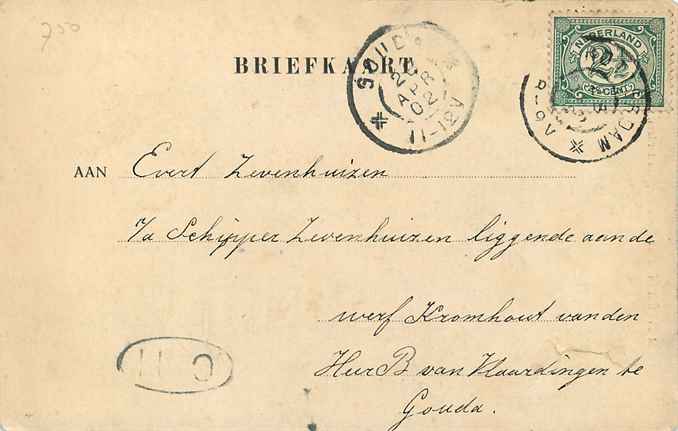 750
BRIEFKAART.
GOUDA
APR
02
11-12V
NEDERLAND
2½
CENT
DAM
8-9V
AAN Evert Zevenhuizen
7/a Schipper Zevenhuizen liggende aan de
werf Kromhout van den
Heer B van Vlaardingen te
Gouda.
C 11